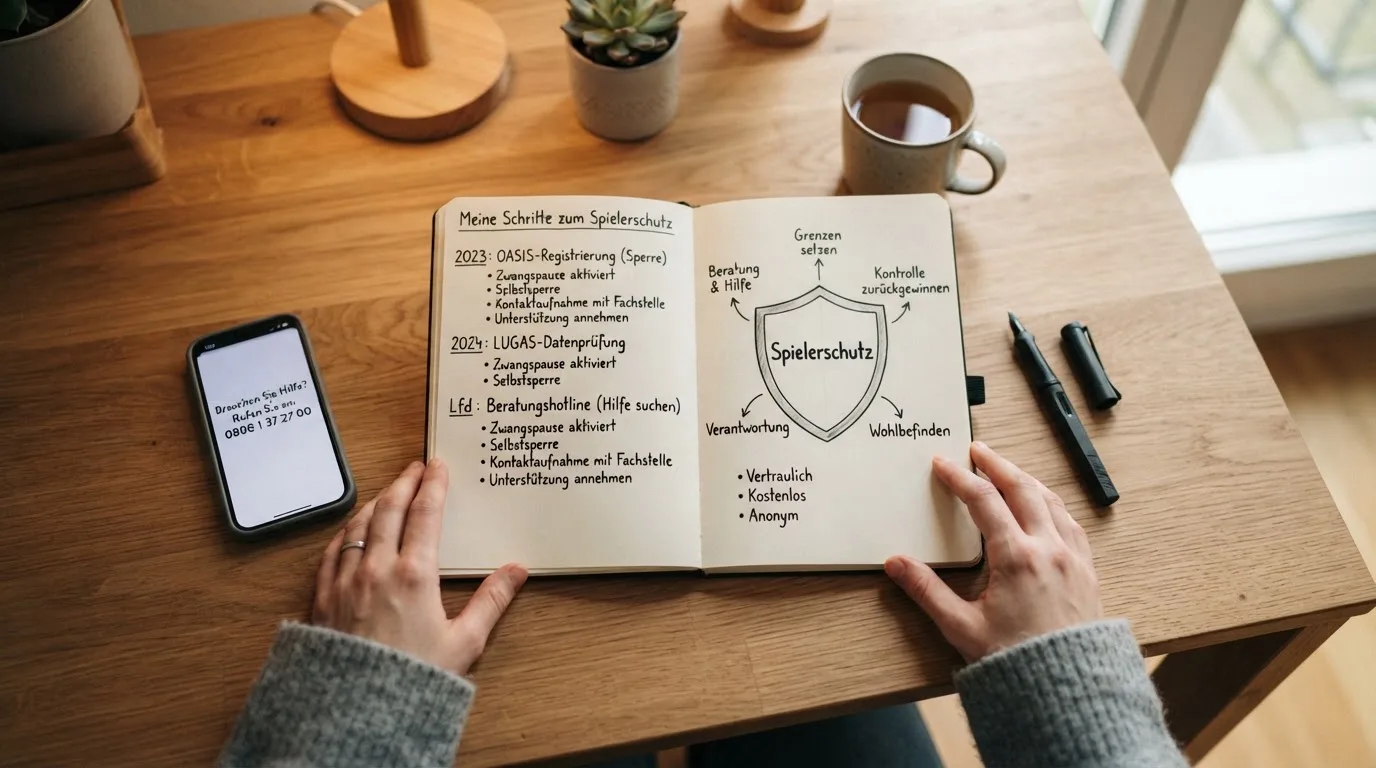 Meine Schritte zum Spielerschutz
2023: OASIS-Registrierung (Sperre)
• Zwangspauce aktiviert
• Selbstsperre
• Kontaktaufnahme mit Fachstelle
• Unterstützung annehmen
2024: LUGAS-Datenprüfung
• Zwangspause aktiviert
• Selbstsperre
Lfd: Beratungshotline (Hilfe suchen)
• Zwangspause aktiviert
• Selbstsperre
• Kontaktaufnahme mit Fachstelle
• Unterstützung annehmen
Grenzen
setzen
Beratung
& Hilfe
Kontrolle
zurückgewinnen
Spielerschutz
Verantwortung
Wohlbefinden
• Vertraulich
• Kostenlos
• Anonym
Sie Hilfe?
Rufen
1 37 27 00